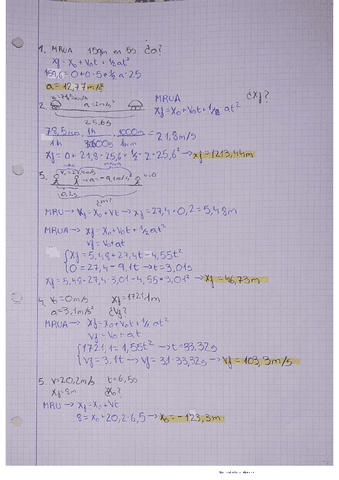 1. MRUA 159m en 5s ¿a?
xf = x₀ + v₀t + ½at²
159,6 = 0 + 0·5 + ½ a·25
a = 12,77 m/s²
2. a=2m/s² MRUA ¿xf?
xf = x₀ + v₀t + ½ at²
25,6s
78,5 km/h · 1h/3600s · 1000m/1km = 21,8 m/s
xf = 0 + 21,8·25,6 + ½·2·25,6² → xf = 1213,44m
3. v₀=27,4m/s a=-9,1m/s² v=0
0,2s
MRU → xf = x₀ + vt → xf = 27,4·0,2 = 5,48m
MRUA → xf = x₀ + v₀t + ½at²
vf = v₀ + at
xf = 5,48 + 27,4t - 4,55t²
0 = 27,4 - 9,1t → t = 3,01s
xf = 5,48 + 27,4·3,01 - 4,55·3,01² → xf = 46,73m
4. v₀=0m/s xf=1721,1m
a=3,1m/s² ¿vf?
MRUA → xf = x₀ + v₀t + ½at²
vf = v₀ + at
1721,1 = 1,55t² → t = 33,32s
vf = 3,1t → vf = 3,1·33,32s → vf = 103,3m/s
5. v=20,2m/s t=6,5s
xf=8m ¿x₀?
MRU → xf = x₀ + vt
8 = x₀ + 20,2·6,5 → x₀ = -123,3m